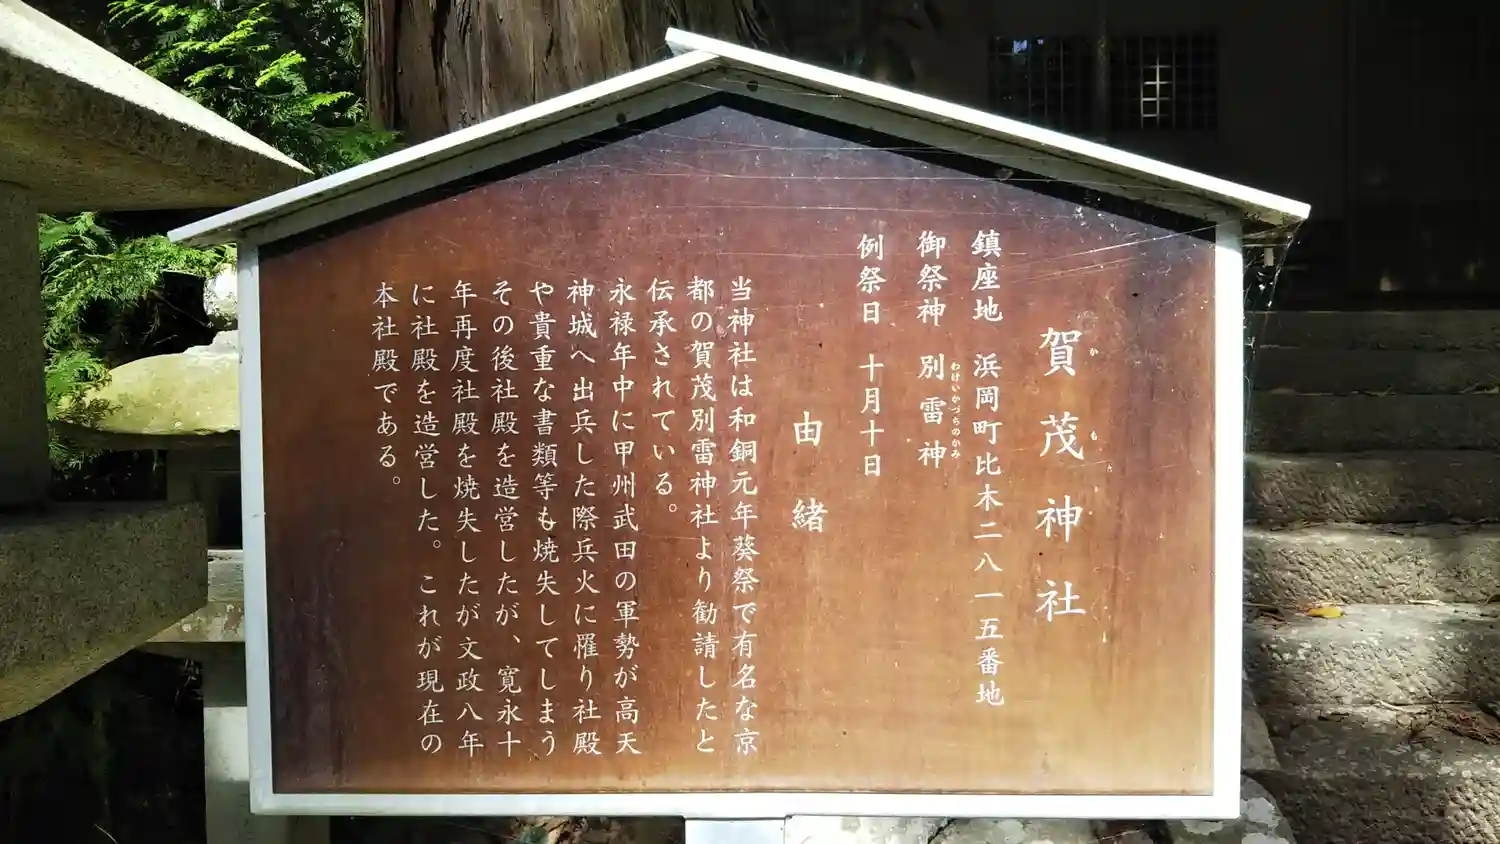 賀茂神社
かも
鎮座地 浜岡町比木二八一五番地
御祭神 別雷神
わけいかづちのかみ
例祭日 十月十日
由緒
当神社は和銅元年葵祭で有名な京
都の賀茂別雷神社より勧請したと
伝承されている。
永禄年中に甲州武田の軍勢が高天
神城へ出兵した際兵火に罹り社殿
や貴重な書類等も焼失してしまう
その後社殿を造営したが、寛永十
年再度社殿を焼失したが文政八年
に社殿を造営した。これが現在の
本社殿である。